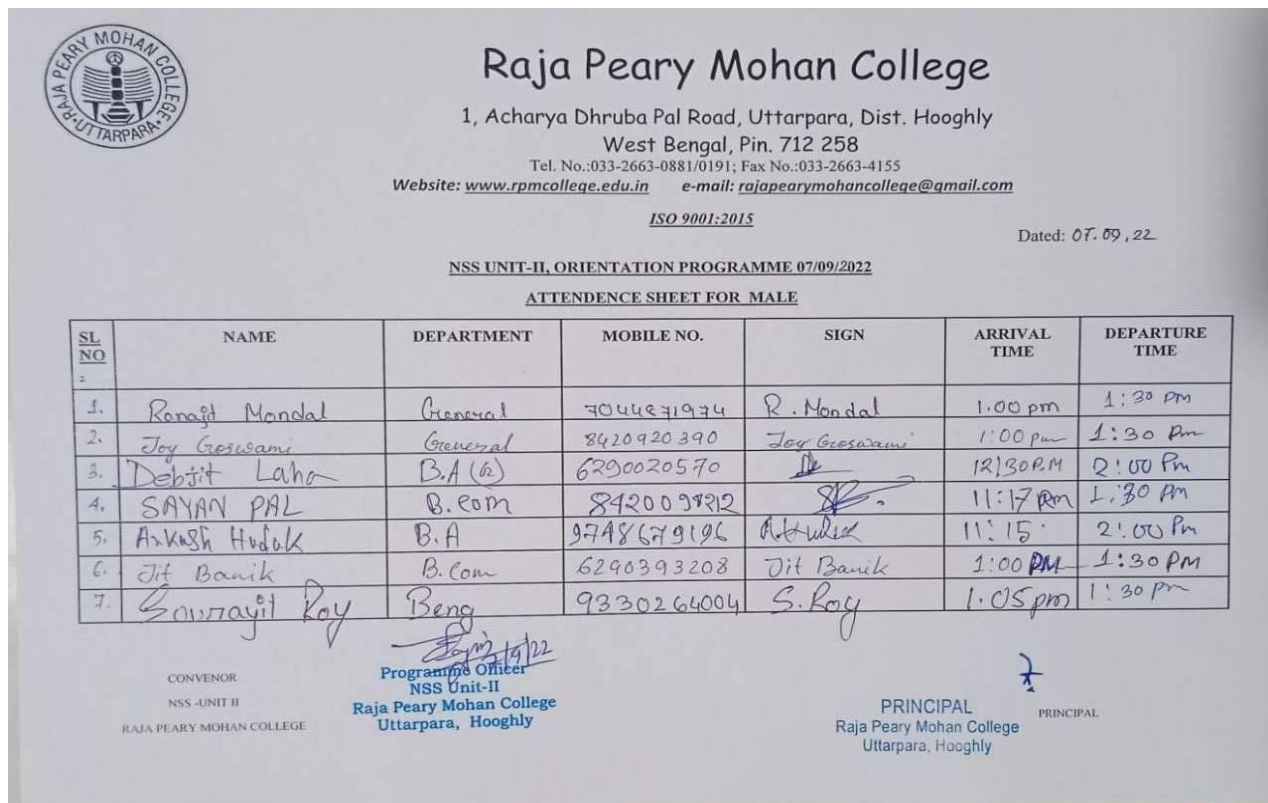 RAJA PEARY MOHAN COLLEGE
UTTARPARA
Raja Peary Mohan College
1, Acharya Dhruba Pal Road, Uttarpara, Dist. Hooghly
West Bengal, Pin. 712 258
Tel. No.:033-2663-0881/0191; Fax No.:033-2663-4155
Website: www.rpmcollege.edu.in e-mail: rajapearymohancollege@gmail.com
ISO 9001:2015
Dated: 07.09,22
NSS UNIT-II, ORIENTATION PROGRAMME 07/09/2022
ATTENDENCE SHEET FOR MALE
SL NO : NAME DEPARTMENT MOBILE NO. SIGN ARRIVAL TIME DEPARTURE TIME
1. Ranajit Mondal General 7044871974 R. Mondal 1.00 pm 1:30 PM
2. Joy Goswami General 8420920390 Joy Goswami 1:00 pm 1:30 Pm
3. Debjit Laha B.A (G) 6290020570 12/30P.M 2:00 Pm
4. SAYAN PAL B.com 11:17 Am 1:30 Pm
5. B.A 9748679196 11:15 2:00 Pm
6. Jit Banik B.Com 6290393208 Jit Banik 1:00 PM 1:30 PM
7. Sourajit Roy Beng 9330264004 S.Roy 1.05pm 1:30 pm
CONVENOR
NSS -UNIT II
RAJA PEARY MOHAN COLLEGE
Programme Officer
NSS Unit-II
Raja Peary Mohan College
Uttarpara, Hooghly
PRINCIPAL
Raja Peary Mohan College
Uttarpara, Hooghly
PRINCIPAL